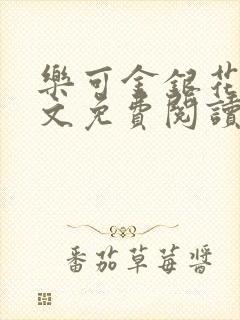 樂可金銀花
文免費閱讀
番茄草莓醬